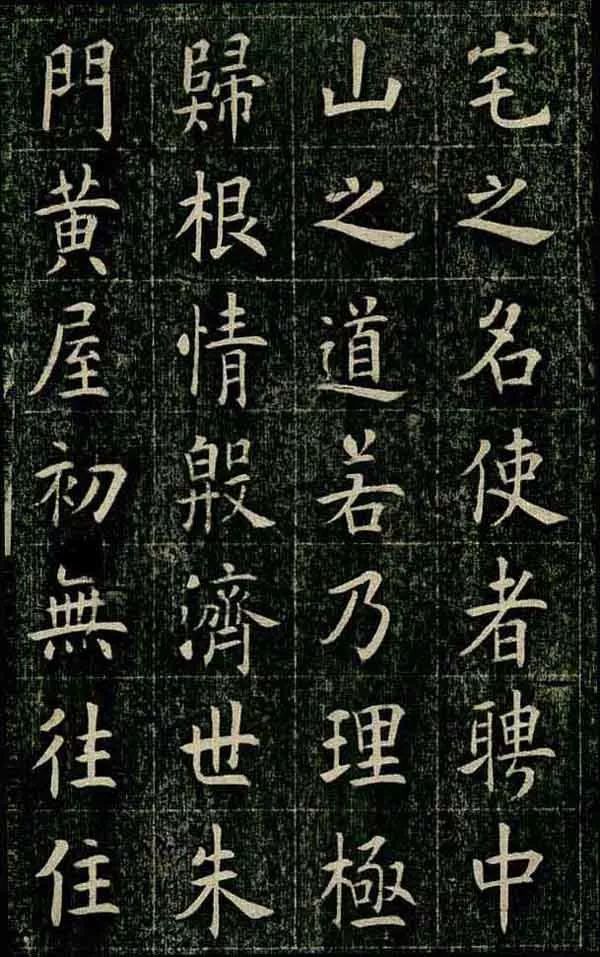 宅之名使者聘中
山之道若乃理極
歸根情殷濟世朱
門黄屋初無往住